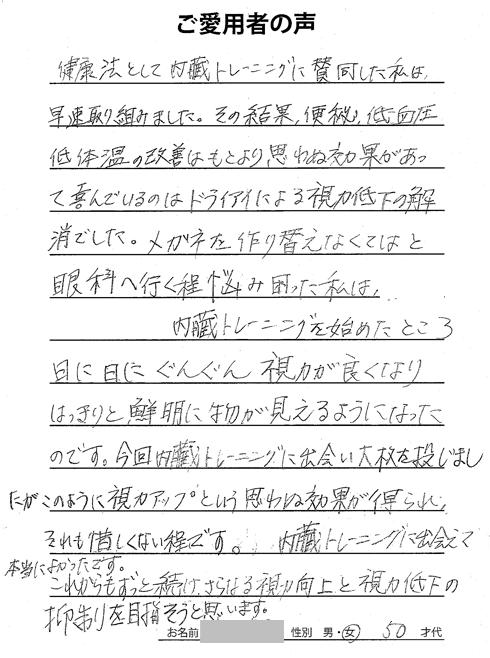 ご愛用者の声
健康法として内臓トレーニングに賛同した私は、
早速取り組みました。その結果、便秘、低血圧
低体温の改善はもとより思わぬ効果があっ
て喜んでいるのはドライアイによる視力低下の解
消でした。メガネを作り替えなくてはと
眼科へ行く程悩み困った私は、
内臓トレーニングを始めたところ
日に日にぐんぐん視力が良くなり
はっきりと鮮明に物が見えるようになった
のです。今回内臓トレーニングに出会い大枚を投じまし
たがこのように視力アップという思わぬ効果が得られ、
それも惜しくない程です。内臓トレーニングに出会えて
本当によかったです。
これからもずっと続けさらなる視力向上と視力低下の
抑制を目指そうと思います。
お名前 性別 男・女 50 才代